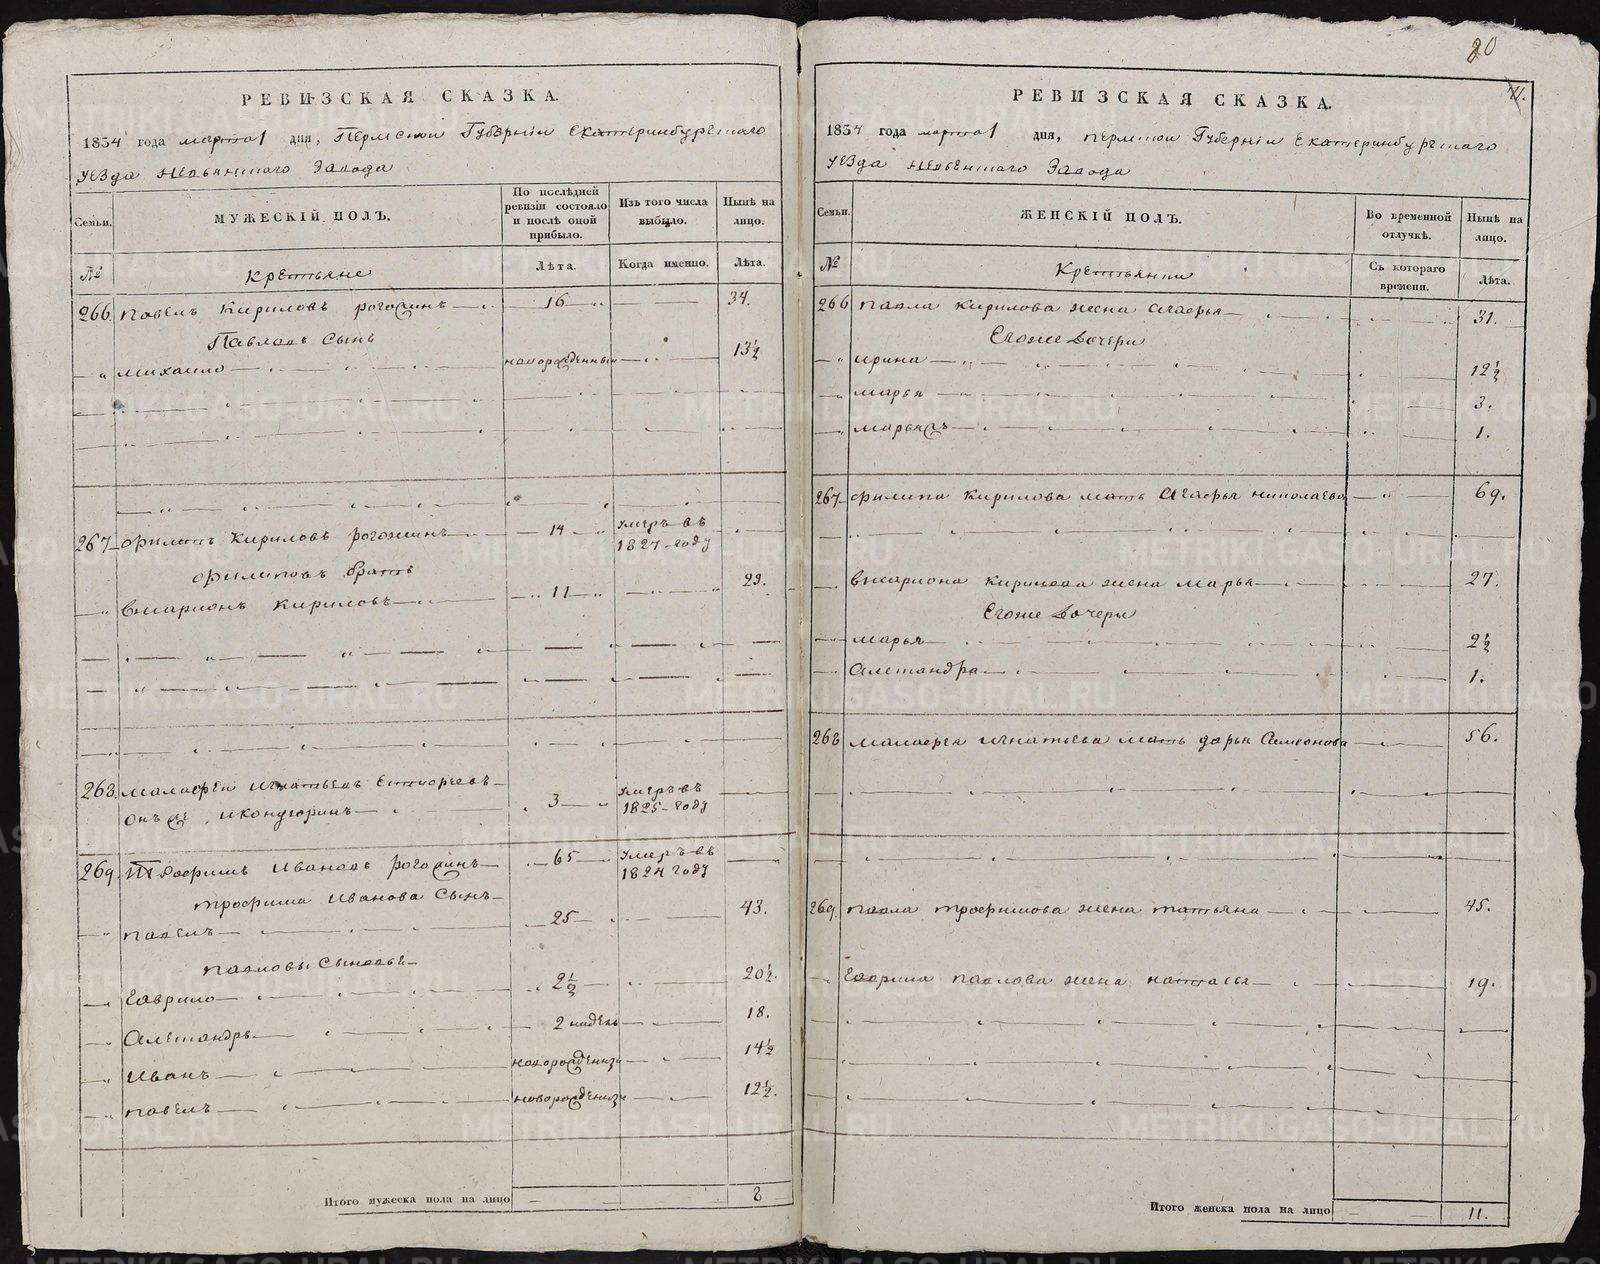 20
РЕВИЗСКАЯ СКАЗКА.
1834 года марта 1 дня, Пермской Губерніи Екатеринбургскаго
уезда Невьянскаго Завода
Семьи.
МУЖЕСКІЙ ПОЛЪ.
По послѣдней ревизіи состояло и послѣ оной прибыло.
Изъ того числа выбыло.
Нынѣ на лицо.
№
Крестьяне
Лѣта.
Когда именно.
Лѣта.
266 Павелъ Кириловъ рогожинъ 16 34.
Павловъ Сынъ
Михаило новорожденный 13½
267 Филипъ Кириловъ рогожинъ 14 умеръ въ 1827 году
Филиповъ братъ
Висарионъ Кириловъ 11 29.
268. Малафеи Игнатьевъ
онъ же 3 умеръ въ 1825 году
269. Трофимъ Ивановъ рогожинъ 65 умеръ въ 1824 году
трофима Иванова Сынъ
павелъ 25 43.
павловы Сыновье
Гаврило 2½ 20½.
Александръ 2 недель 18.
Иванъ новорожденный 14½
павелъ новорожденный 12½.
Итого мужеска пола на лицо 8
РЕВИЗСКАЯ СКАЗКА.
1834 года марта 1 дня, пермской Губерніи Екатеринбургскаго
уезда Невьянскаго Завода
Семьи.
ЖЕНСКІЙ ПОЛЪ.
Во временной отлучкѣ.
Нынѣ на лицо.
№
Крестьянки
Съ котораго времени.
Лѣта.
266 павла Кирилова жена Агафья 31.
Егоже дочери
ирина 12½
марья 3.
марья жъ 1.
267 филипа Кирилова мать Агафья николаева 69.
висариона Кирилова жена марья 27.
Егоже дочери
марья 2½
Александра 1.
268 малафея игнатьева мать дарья Симеонова 56.
269. павла трофимова жена татьяна 45.
Гаврила павлова жена настасья 19.
Итого женска пола на лицо 11.
METRIKI.GASO-URAL.RU